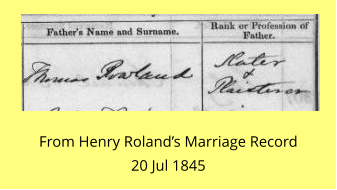 Father's Name and Surname.
Rank or Profession of
Father.
Thomas Rowland
Slater
&
Plaisterer
From Henry Roland's Marriage Record
20 Jul 1845